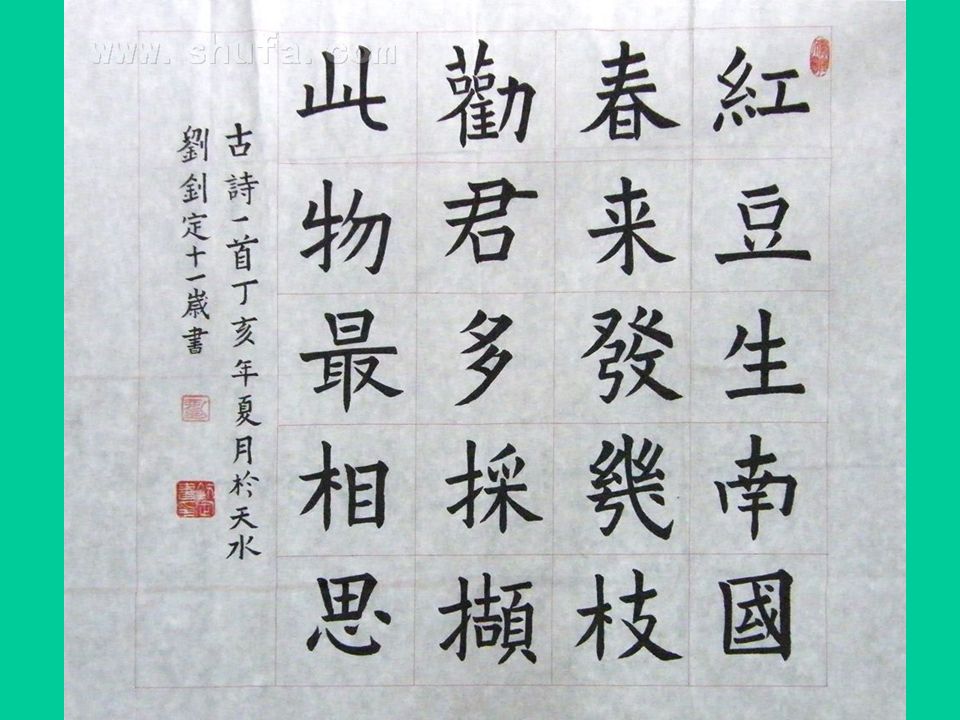 紅豆生南國
春来發幾枝
勸君多採擷
此物最相思
古詩一首丁亥年夏月於天水
劉釗定十一歲書
www.shufa.com